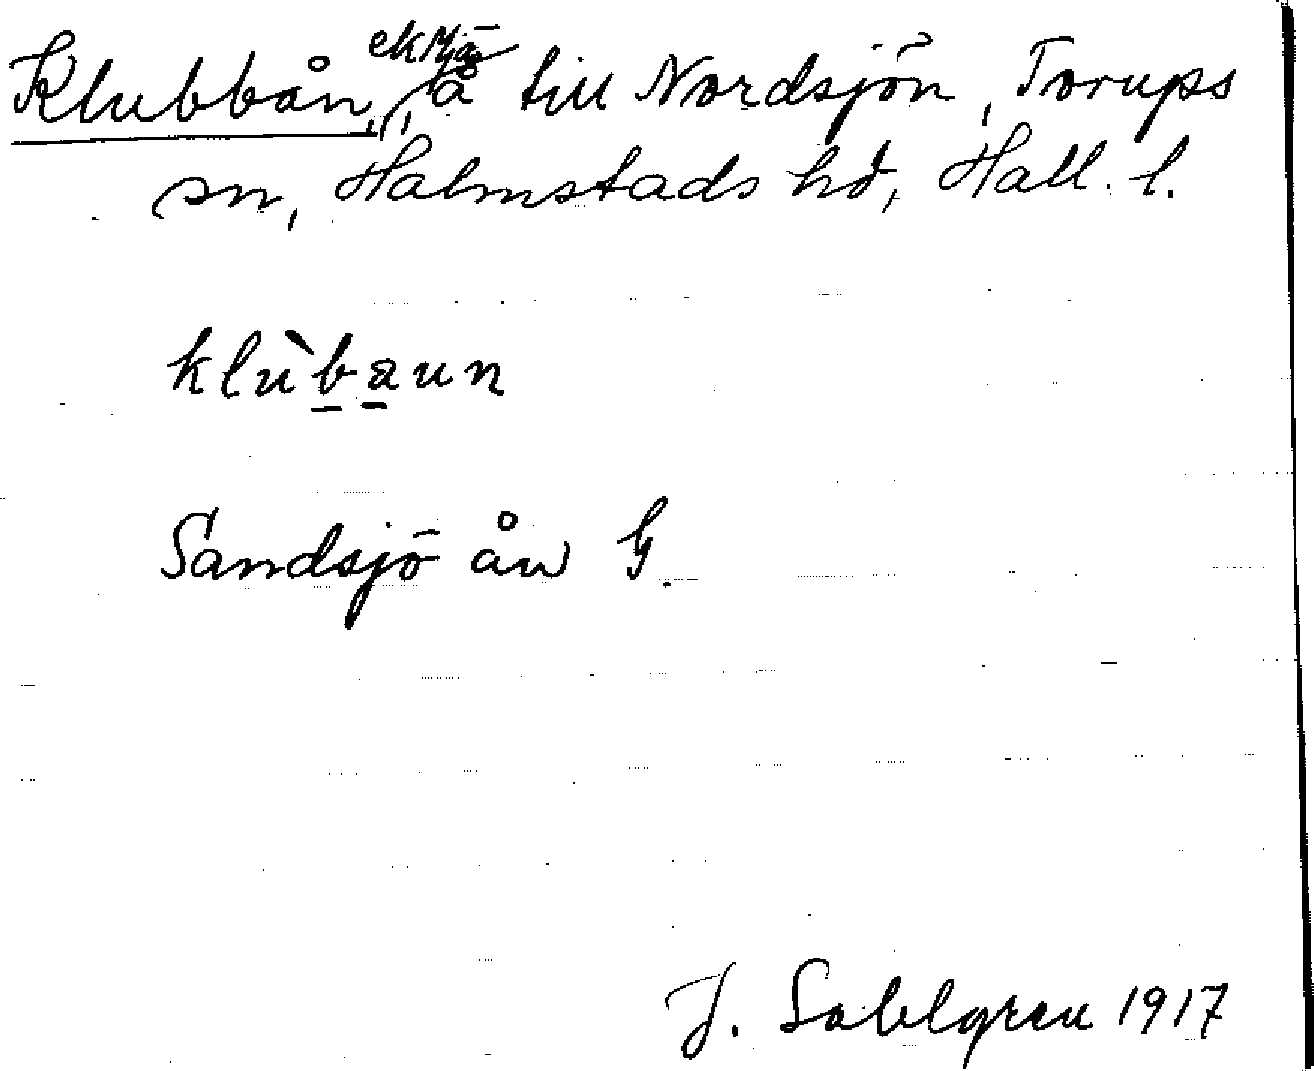 Klubbån, å till Nordsjön, Torups
sn, Halmstads hd, Hall. l.
klùbaun
Sandsjö ån G.
J. Sahlgren 1917